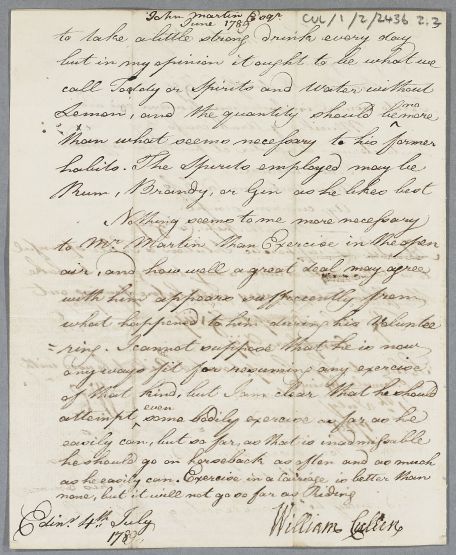 John Martin Esqr
June 1789
CUL/1/2/2436 2.3
to take a little strong drink every day
but in my opinion it ought to be what we
call Toddy or Spirits and Water without
Lemon, and the quantity should be no more
than what seems necessary to his former
habits. The Spirits employed may be
Rum, Brandy, or Gin as he likes best
Nothing seems to me more necessary
to Mr. Martin than Exercise in the open
air, and how well a great deal may agree
with him appears sufficiently from
what happened to him during his Voluntee
=ring. I cannot suppose that he is now
anyways fit for resuming any exercise
of that kind, but I am clear that he should
attempt even some bodily exercise as far as he
easily can, but so far as that is inadmissable
he should go on horseback as often and as much
as he easily can. Exercise in a Cariage is better than
none, but it will not go so far as Riding
Edinr. 4th July
1789
William Cullen